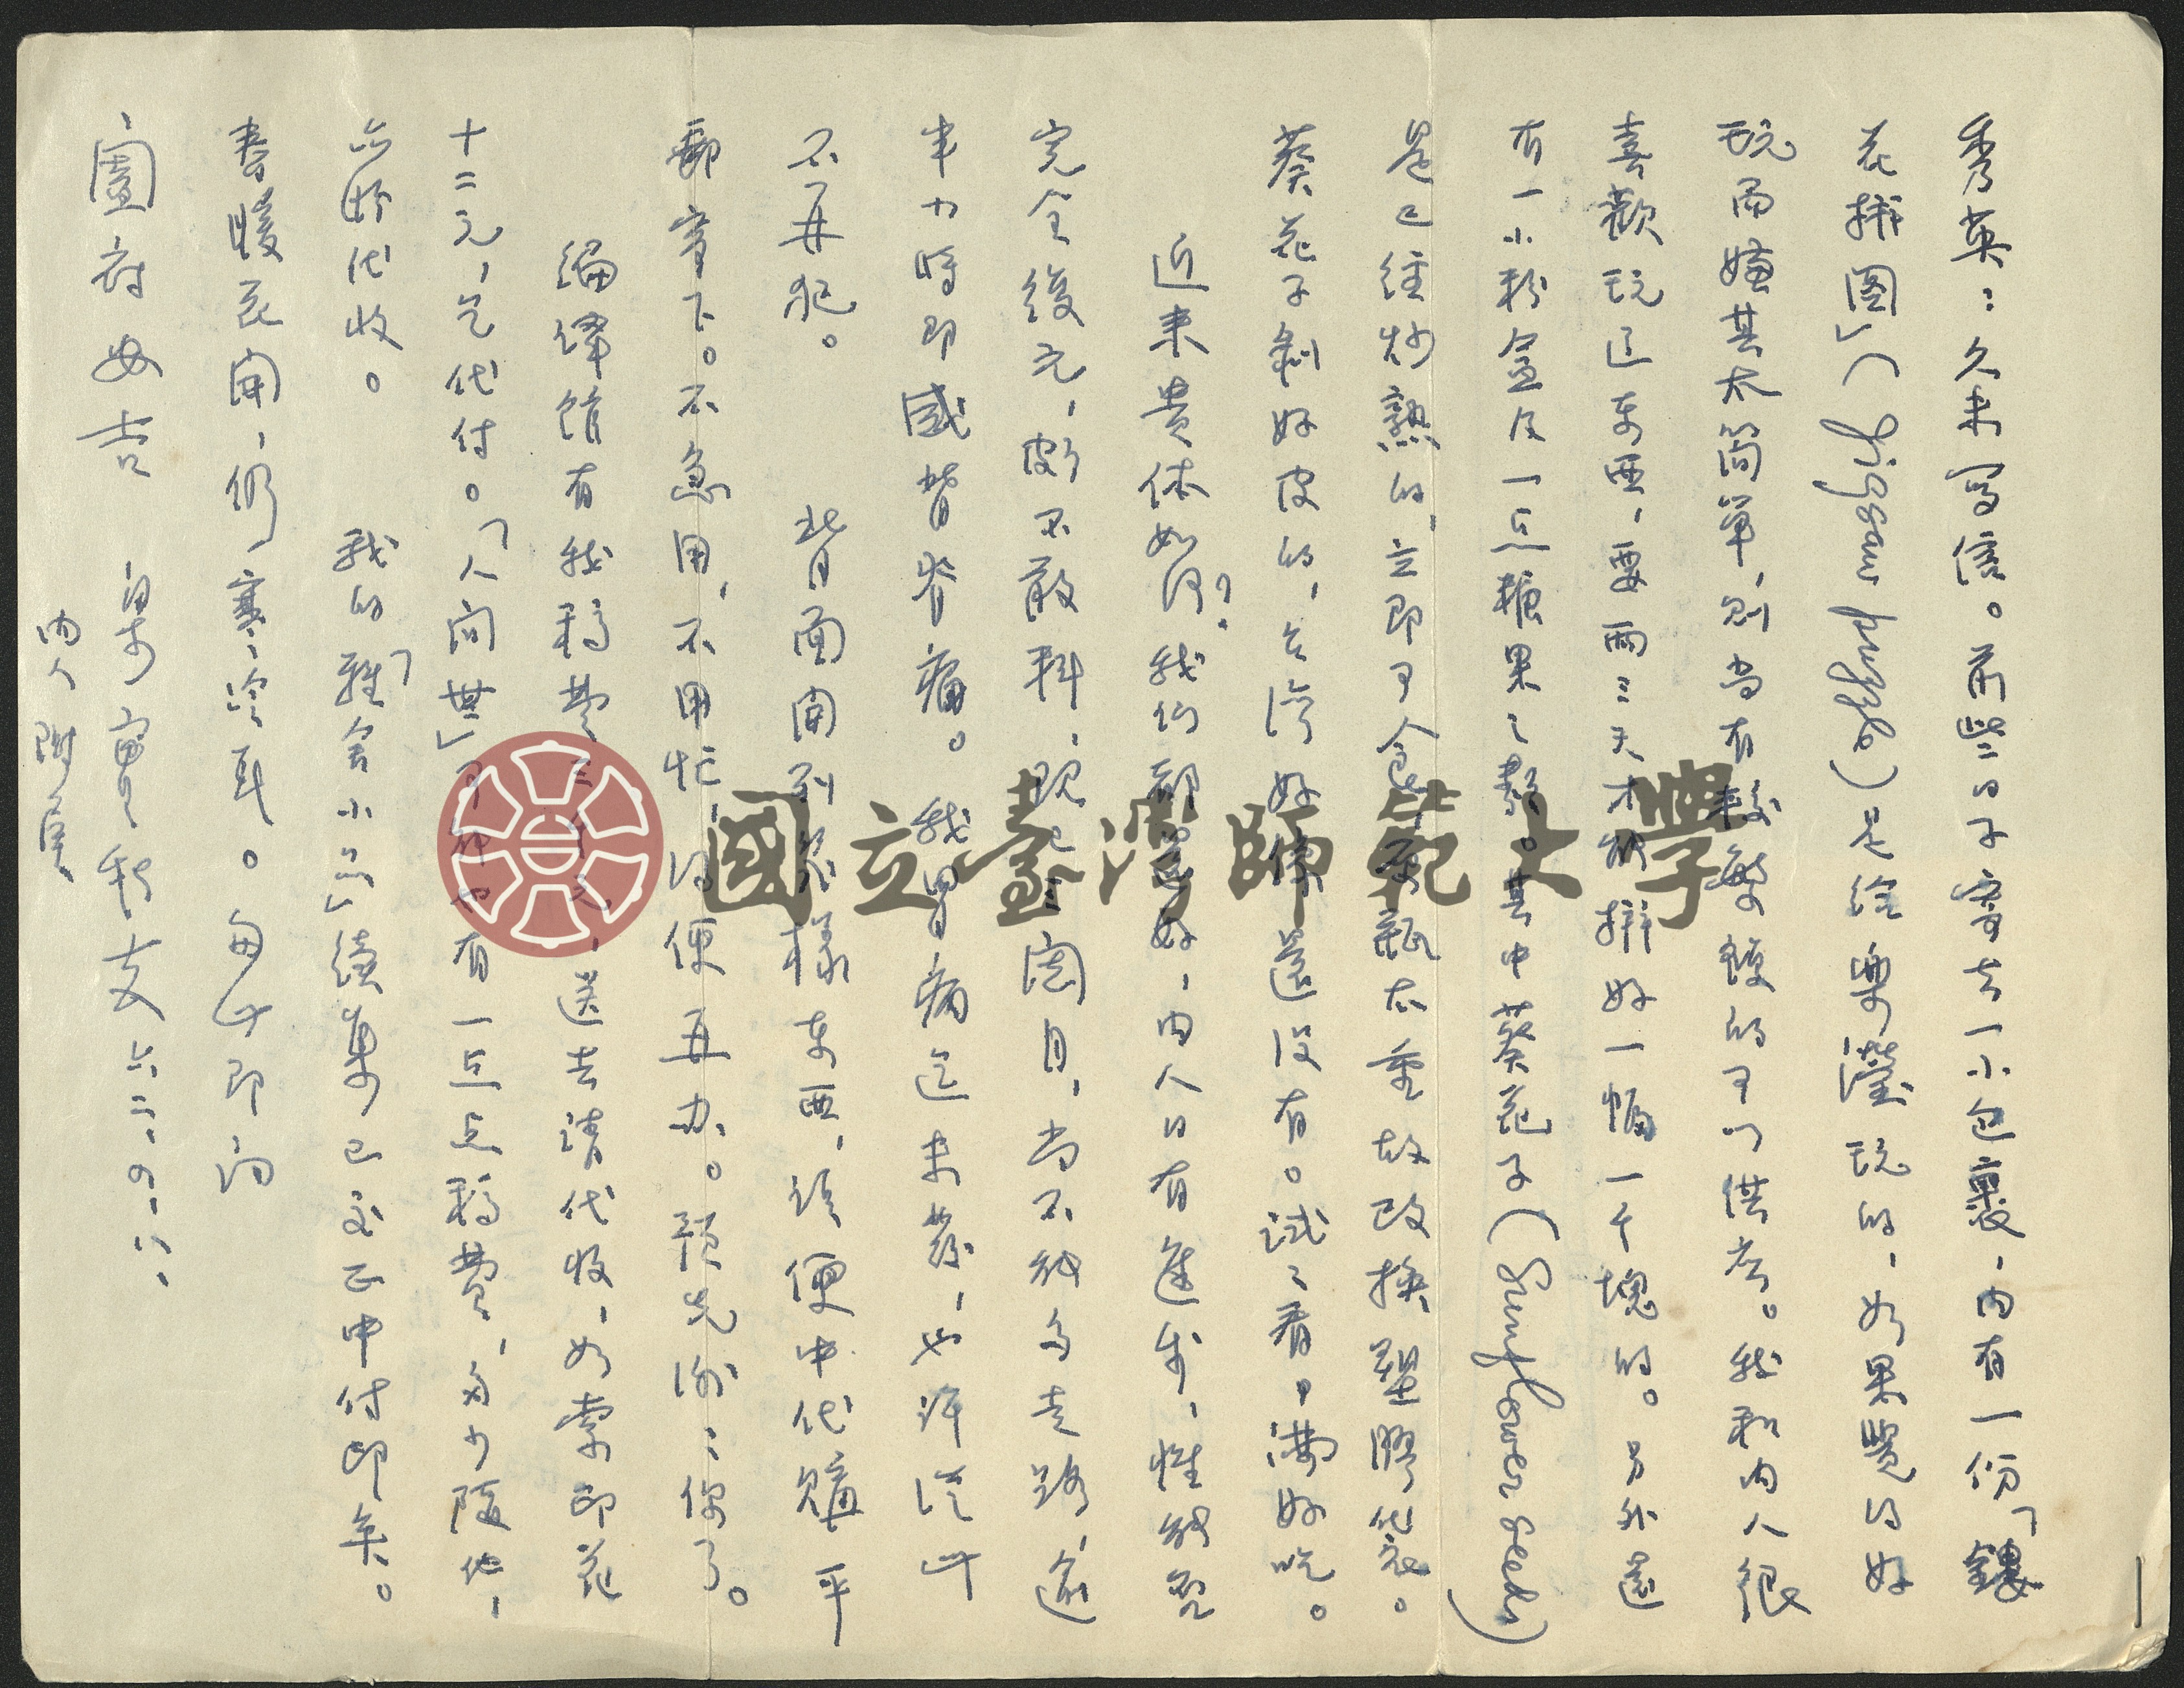 秀英：久未寫信。前得日子寄去一小包裹，內有一份「鏤
花拼圖」（Jigsaw puzzle）是給兩寶玩的，如果覺得好
玩而嫌其太簡單，則尚有較繁雜的可以供應。我和內人很
喜歡玩這東西，要兩三天才能拼好一幅一千塊的。另外還
有一小粉盒及一点糖果之類。其中葵花子（Sunflower seeds）
是已經炒熟的，立即可食，原瓶太重故改換塑膠花袋。
葵花子剝好皮的，台灣好像還沒有。試試看，滿好吃。
近來貴体如何？我們都還好，內人日有進步，惟就
完全復元，頗不敢料，現已三個月，尚不能多走路，逾
半力時即感背脊痛。我胃病迄未發，也許從此
不再犯。　背面開列各樣東西，請便中代購平
郵寄下。不急用，不用忙，得便再办。預先谢谢你了。
編譯館有我稿費　　，送去請代收，如索印花
十二元，乞代付。「人間世」　有一点点稿費，多少隨他，
亦祈代收。　我的「雅舍小品」續集已交正中付印矣。
春暖花開，仍寒冷耳。匆此即頌
闔府安吉　　　梁實秋　六二、四、二、
內人附筆
國立臺灣師範大學